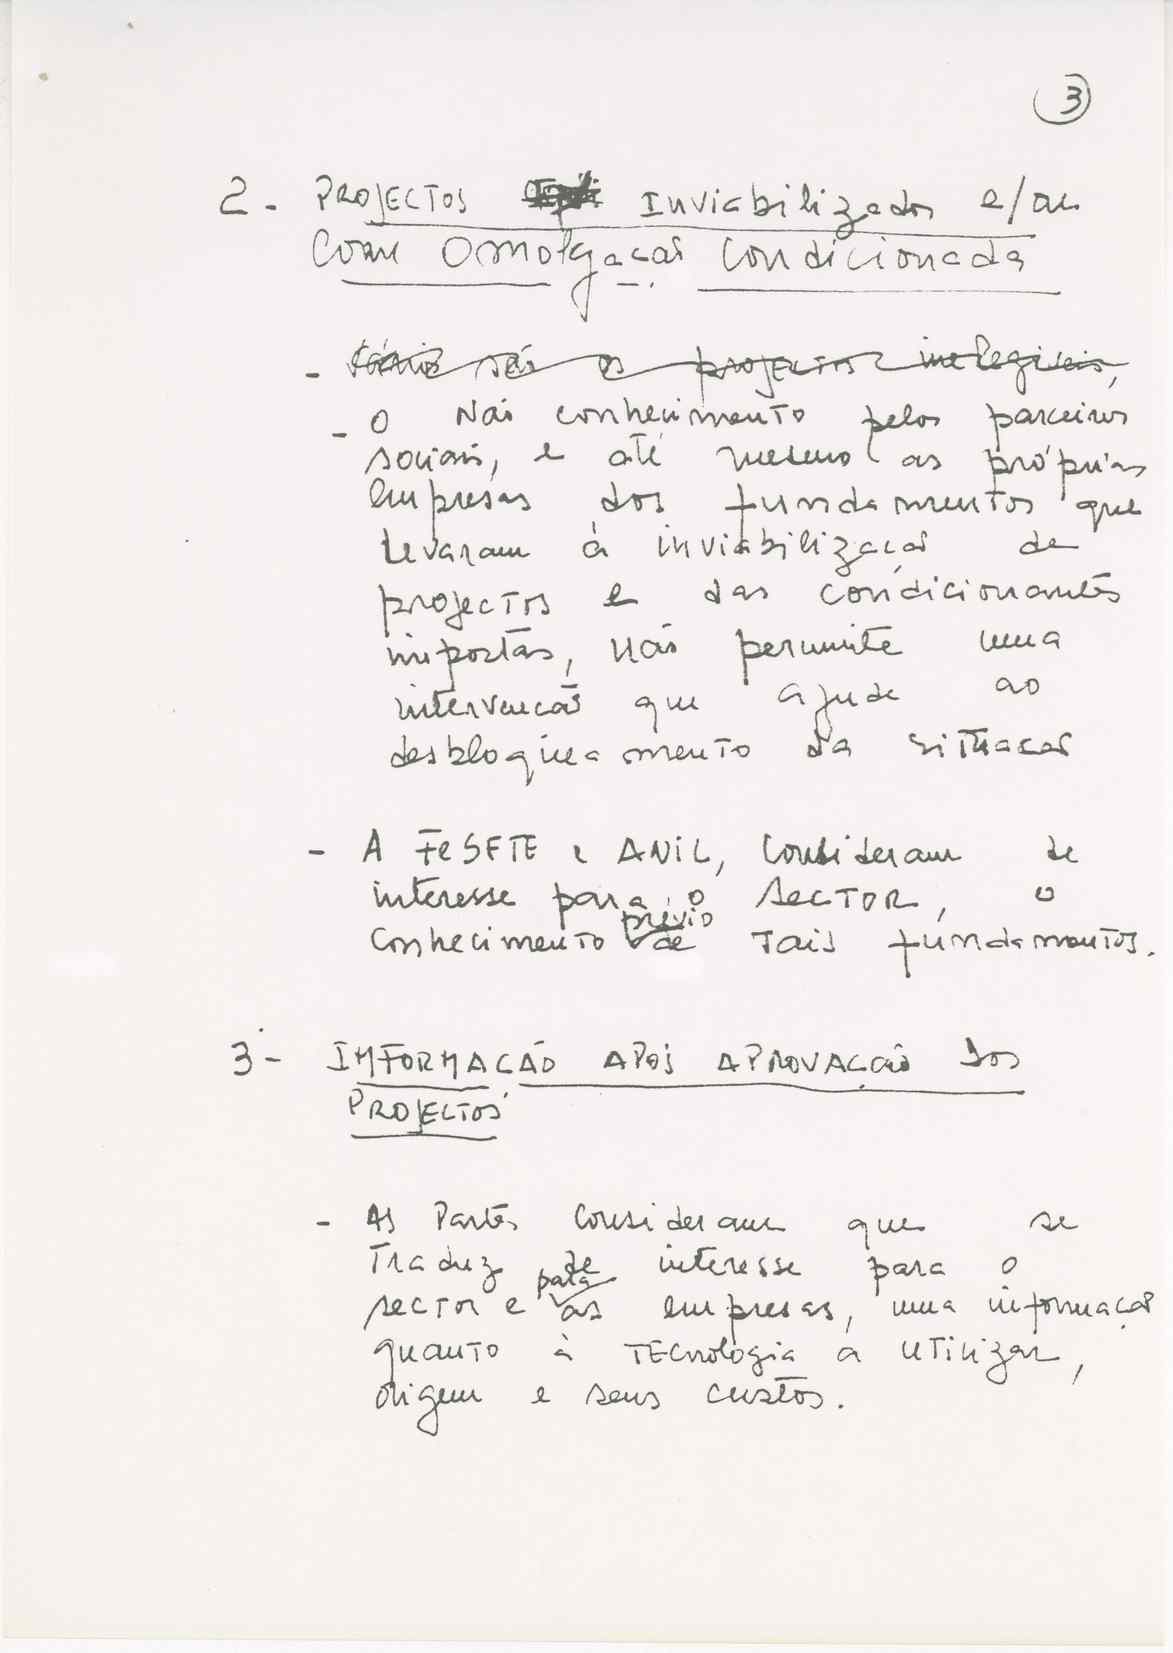 3
2. PROJECTOS Inviabilizados e/ou
Com Omolgação Condicionada
- são os projectos inelegiveis,
- O Não conhecimento pelos parceiros
sociais, e até mesmo as próprias
empresas dos fundamentos que
levaram à inviabilização de
projectos e das condicionantes
impostas, não permite uma
intervenção que ajude ao
desbloqueamento da situação
- A FeSETE e ANIL, Consideram de
interesse para o SECTOR, o
conhecimento prévio de Tais fundamentos.
3- INFORMAÇÃO APÓS APROVAÇÃO DOS
PROJECTOS
- As Partes Consideram que se
Traduz de interesse para o
sector e para as empresas, uma informação
quanto à Tecnologia a utilizar,
origem e seus custos.